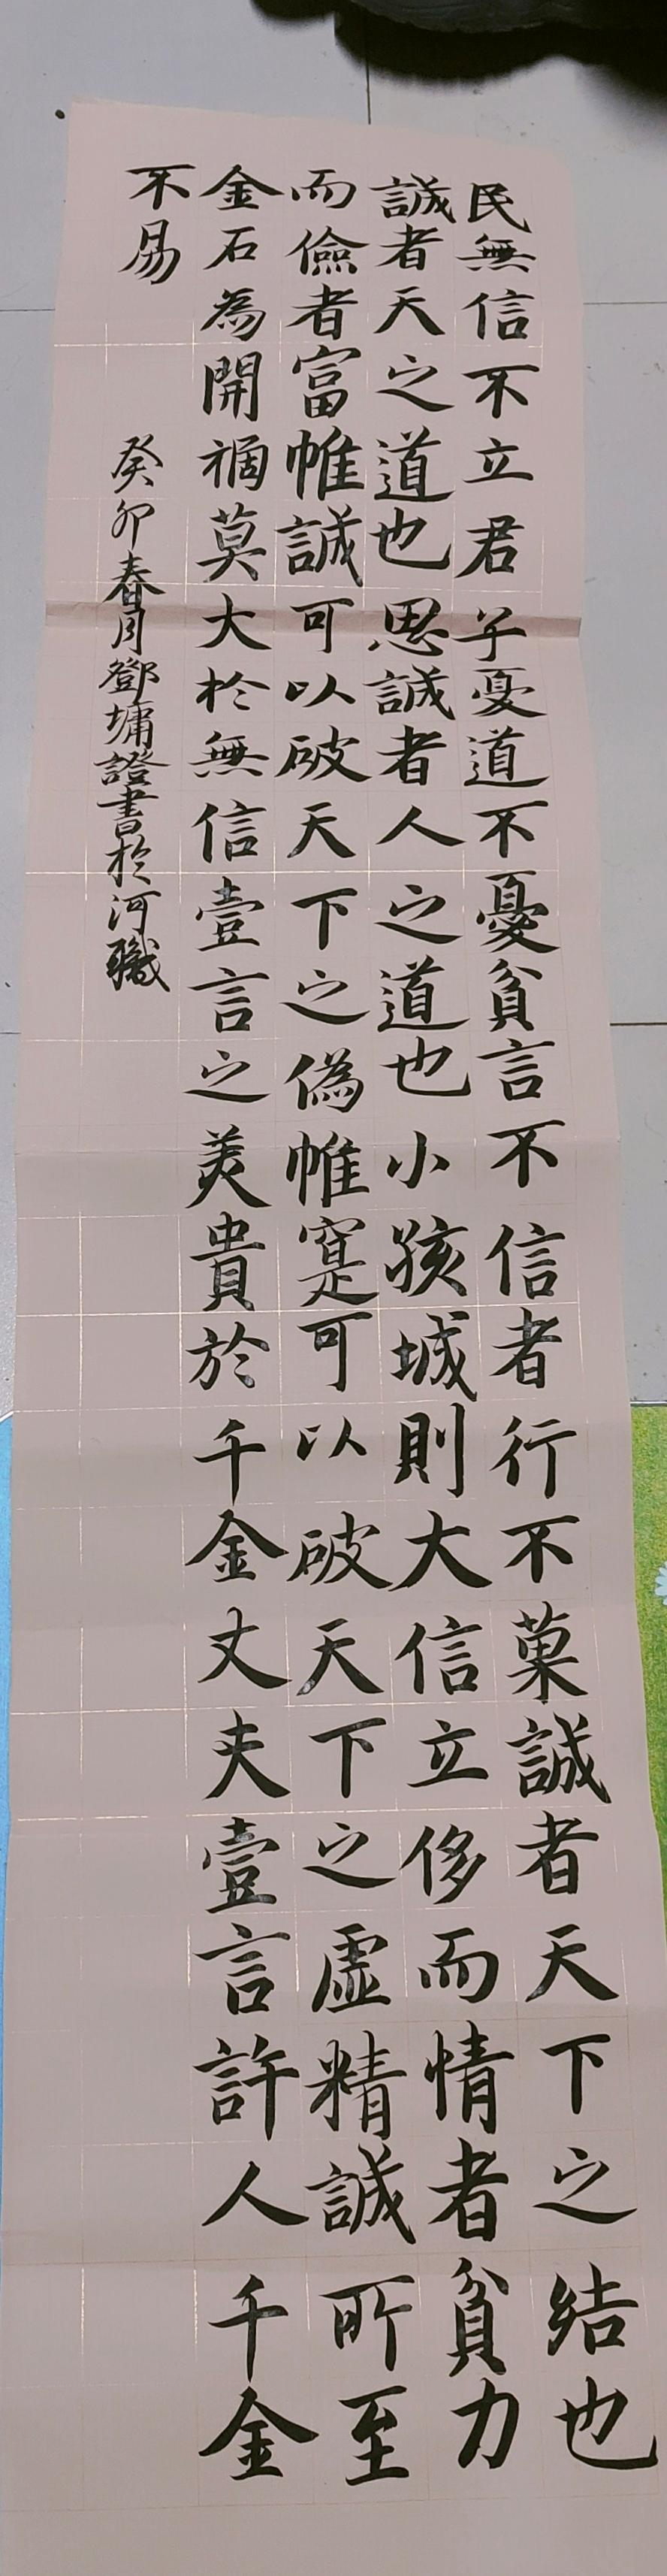 民無信不立君子憂道不憂貧言不信者行不菓誠者天下之结也
誠者天之道也思誠者人之道也小孩城則大信立侈而情者貧力
而儉者富帷誠可以破天下之偽帷寔可以破天下之虛精誠所至
金石為開禍莫大於無信壹言之美貴於千金丈夫壹言許人千金
不易
癸卯春月鄧墉證書於河職